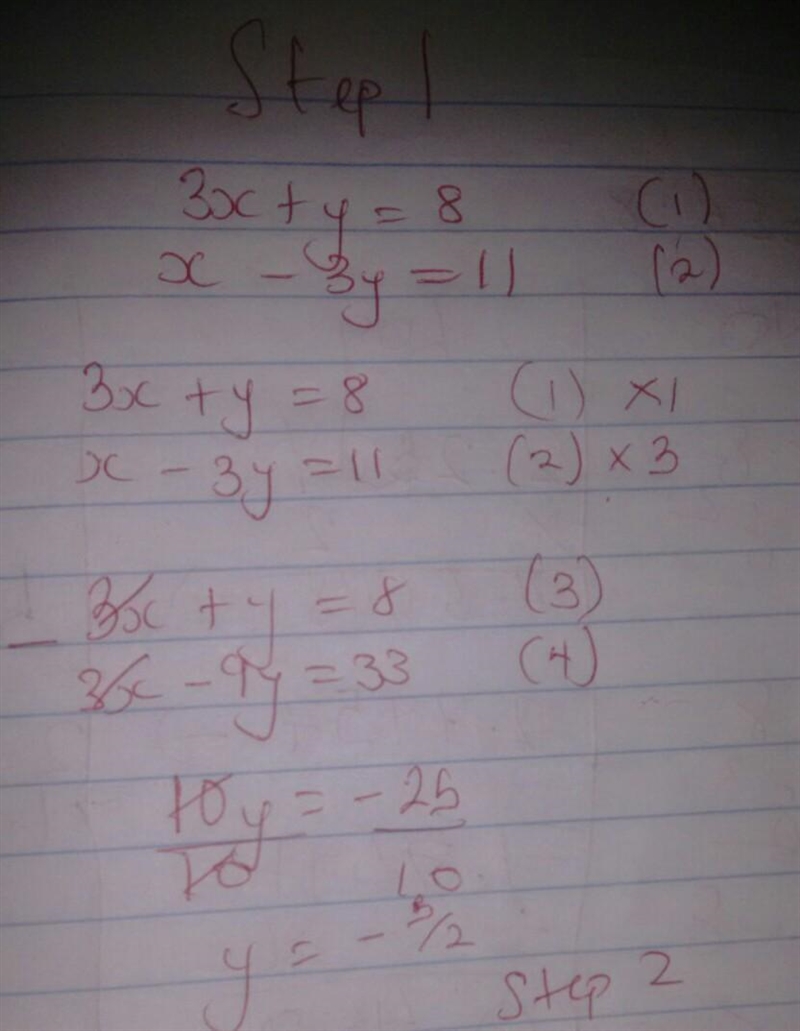 Step 1
3x + y = 8 (1)
x - 3y = 11 (2)
3x + y = 8 (1) ×1
x - 3y = 11 (2) × 3
- 3x + y = 8 (3)
3x - 9y = 33 (4)
10y = -25
10 10
y = -5/2
Step 2